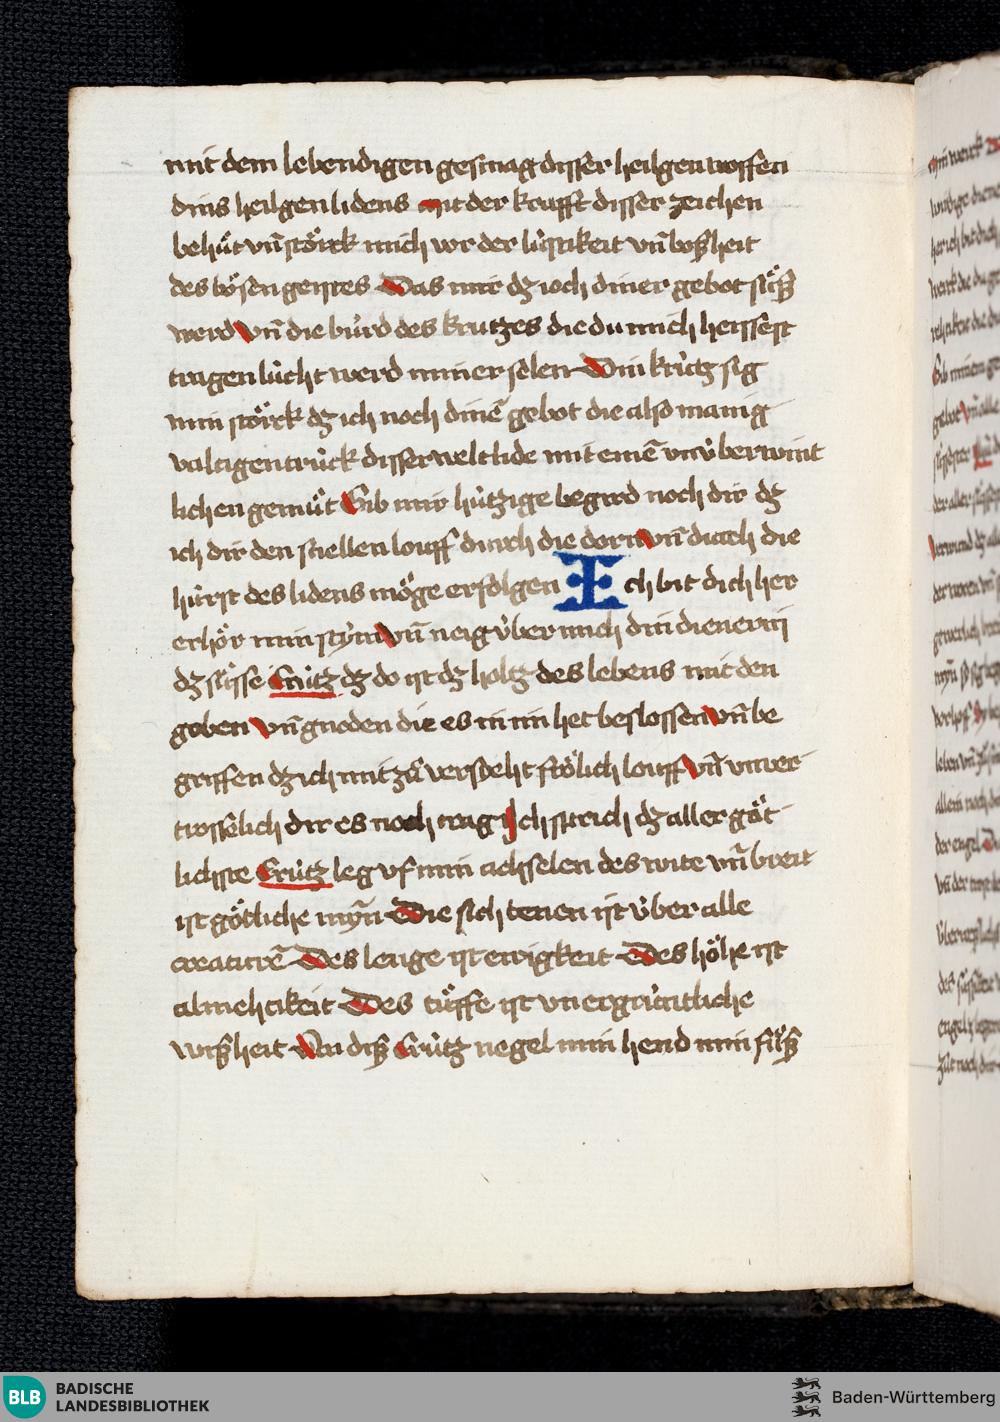 mit dem lebendigen gesmag disser heilgen woffen
dins heilgen lidens mit der krafft disser zeichen
behüt vn̄ störck mich vor der listikeit vn̄ bosheit
des bösen geistes Das mir dz ioch diner gebot süß
werd vn̄ die burd des krutzes die du mich heissest
tragen licht werd miner selen Din krütz sig
min störck dz ich noch dinē gebot die also manig
valtigen trück disser welt lide mit einē vnüberwint
lichen gemüt Gib mir hitzige begird noch dir dz
ich dir den snellen louff durch die dorn vn̄ durch die
hürst des lidens möge erfolgen Ich bit dich her
erhör min stym vn̄ neig über mich din dienerin
dz süsse Crütz dz do ist dz holtz des lebens mit den
goben vn̄ gnoden die es in im het beslossen vn̄ be
griffen dz ich mit zů versicht frölich louff vn̄ vnver
trossēlich dir es noch trag Ich sprich dz aller göt
lichste Crütz leg vf min achselen des wite vn̄ breit
ist götliche myn̄ Die sich tenen ist über alle
creaturē Des lenge ist ewigkeit Des höhe ist
almehtikeit Des tüffe ist vnergrüntliche
wisheit An diß Crütz negel min hend min füß
BLB
BADISCHE
LANDESBIBLIOTHEK
Baden-Württemberg